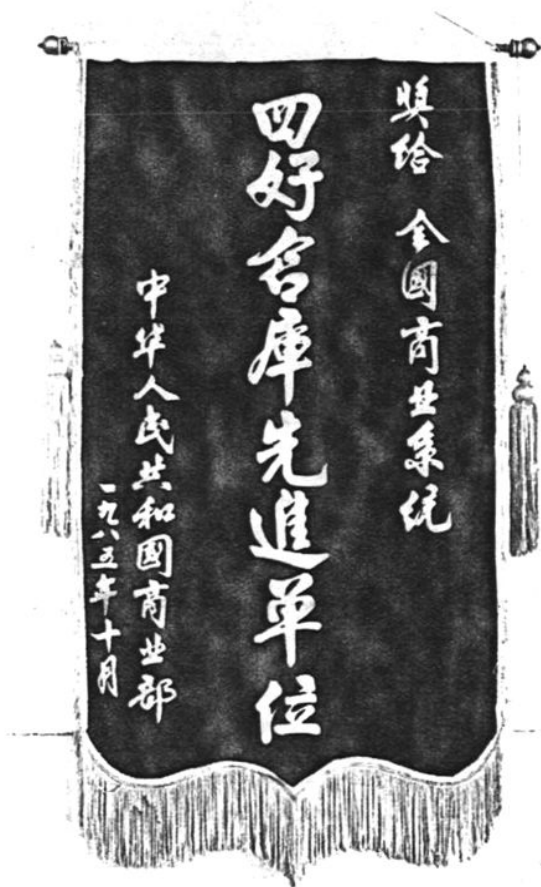 奬给 全國商业系统
四好仓庫先進单位
中华人民共和國商业部
一九八五年十月